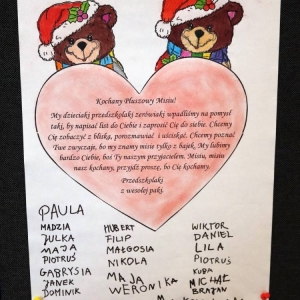 Kochany Pluszowy Misiu!
My dzieciaki przedszkolaki zerówiaki wpadliśmy na pomysł
taki, by napisać list do Ciebie i zaprosić Cię do siebie. Chcemy
Cię zobaczyć z bliska, porozmawiać i uściskać. Chcemy poznać
Twe zwyczaje, bo my znamy misie tylko z bajek. My lubimy
bardzo Ciebie, boś Ty naszym przyjacielem. Misiu, misiu
nasz kochany, przyjdź proszę, bo Cię kochamy.
Przedszkolaki
z wesołej paki.
PAULA
MADZIA HUBERT WIKTOR
JULKA FILIP DANIEL
MAJA MAŁGOSIA LILA
PIOTRUŚ NIKOLA PIOTRUŚ
GABRYSIA MAJA KUBA
JANEK WERONIKA MICHAŁ
DOMINIK BRAJAN